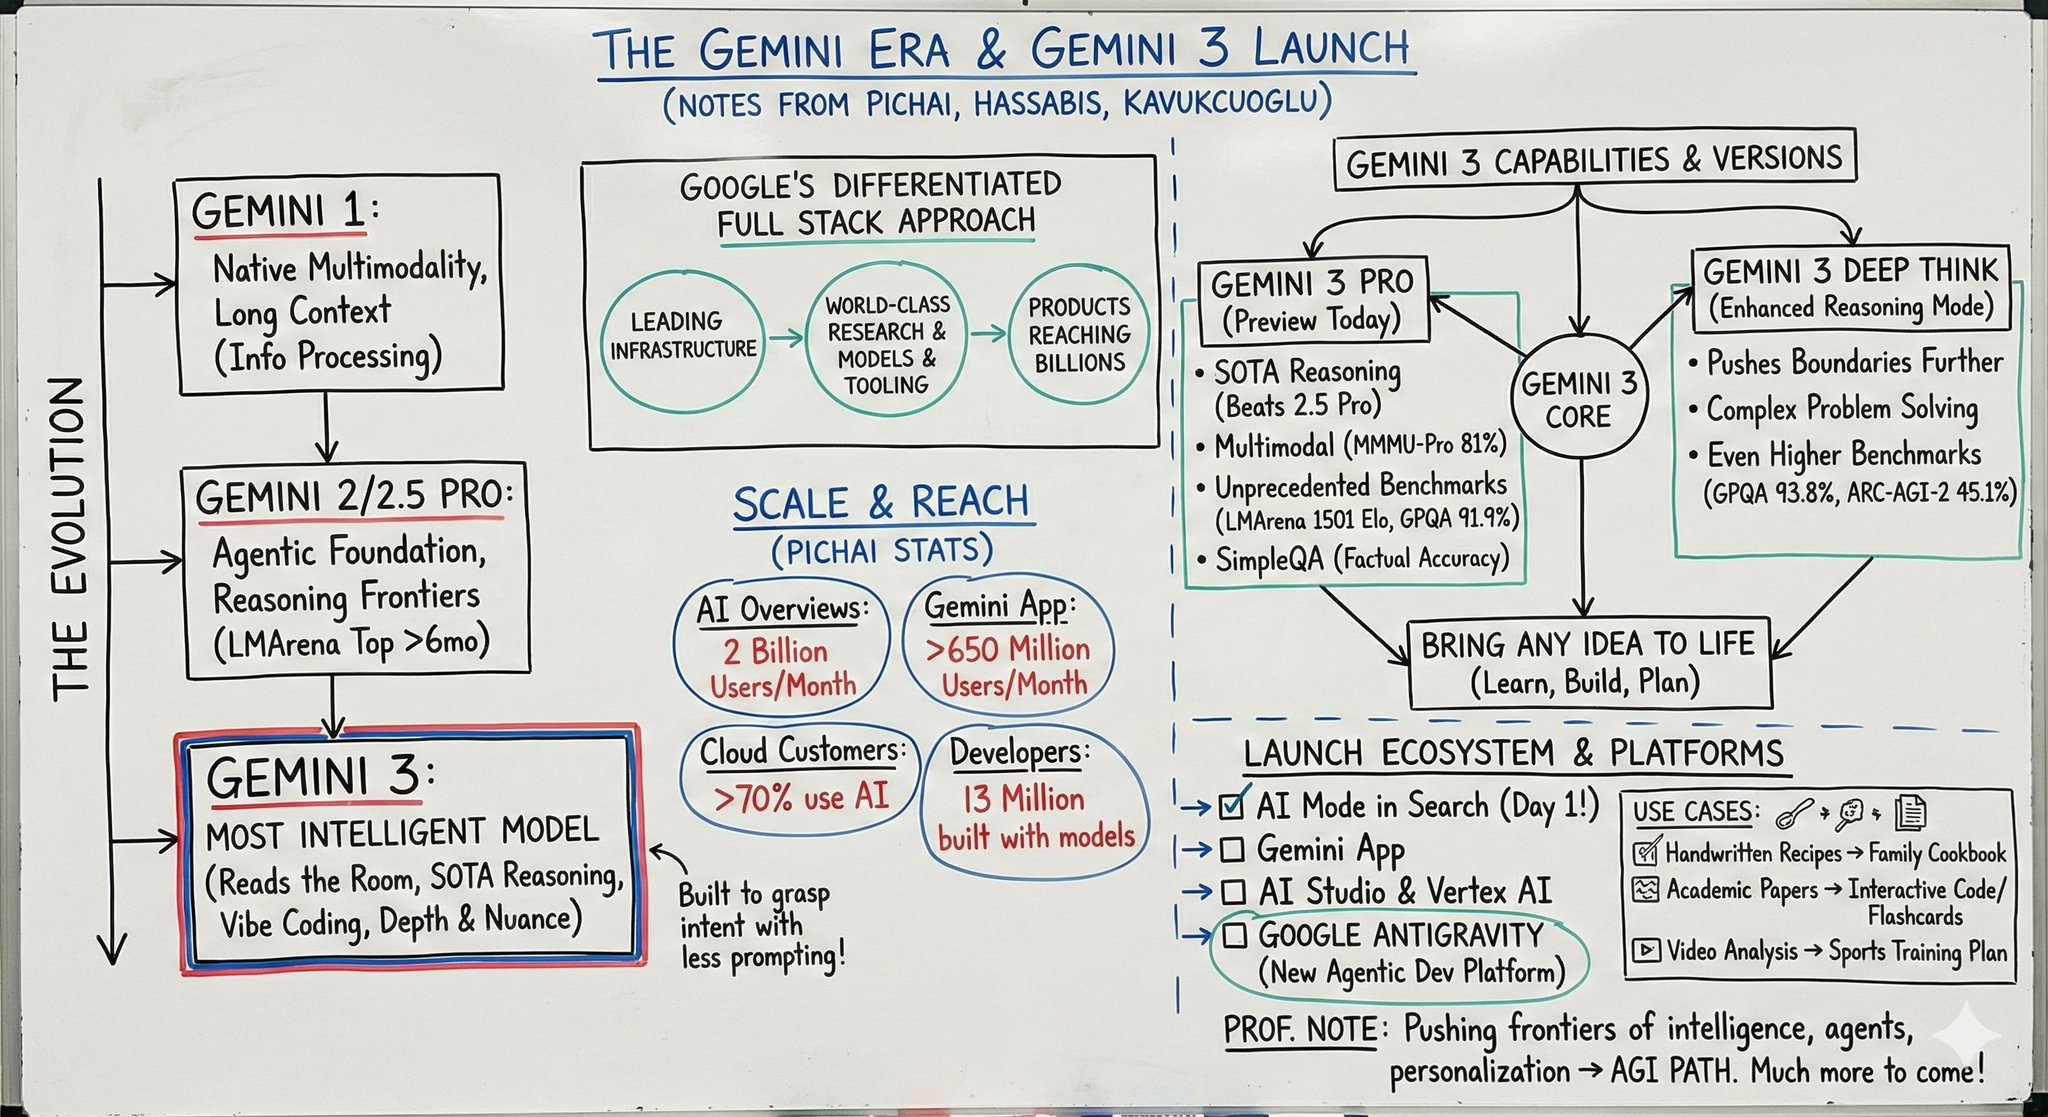 THE GEMINI ERA & GEMINI 3 LAUNCH
(NOTES FROM PICHAI, HASSABIS, KAVUKCUOGLU)
THE EVOLUTION
GEMINI 1:
Native Multimodality,
Long Context
(Info Processing)
GEMINI 2/2.5 PRO:
Agentic Foundation,
Reasoning Frontiers
(LMArena Top >6mo)
GEMINI 3:
MOST INTELLIGENT MODEL
(Reads the Room, SOTA Reasoning,
Vibe Coding, Depth & Nuance)
Built to grasp
intent with
less prompting!
GOOGLE'S DIFFERENTIATED
FULL STACK APPROACH
LEADING
INFRASTRUCTURE
WORLD-CLASS
RESEARCH &
MODELS &
TOOLING
PRODUCTS
REACHING
BILLIONS
SCALE & REACH
(PICHAI STATS)
AI Overviews:
2 Billion
Users/Month
Gemini App:
>650 Million
Users/Month
Cloud Customers:
>70% use AI
Developers:
13 Million
built with models
GEMINI 3 CAPABILITIES & VERSIONS
GEMINI 3 PRO
(Preview Today)
• SOTA Reasoning
(Beats 2.5 Pro)
• Multimodal (MMMU-Pro 81%)
• Unprecedented Benchmarks
(LMArena 1501 Elo, GPQA 91.9%)
• SimpleQA (Factual Accuracy)
GEMINI 3
CORE
GEMINI 3 DEEP THINK
(Enhanced Reasoning Mode)
• Pushes Boundaries Further
• Complex Problem Solving
• Even Higher Benchmarks
(GPQA 93.8%, ARC-AGI-2 45.1%)
BRING ANY IDEA TO LIFE
(Learn, Build, Plan)
LAUNCH ECOSYSTEM & PLATFORMS
AI Mode in Search (Day 1!)
Gemini App
AI Studio & Vertex AI
GOOGLE ANTIGRAVITY
(New Agentic Dev Platform)
USE CASES:
Handwritten Recipes → Family Cookbook
Academic Papers → Interactive Code/
Flashcards
Video Analysis → Sports Training Plan
PROF. NOTE: Pushing frontiers of intelligence, agents,
personalization → AGI PATH. Much more to come!